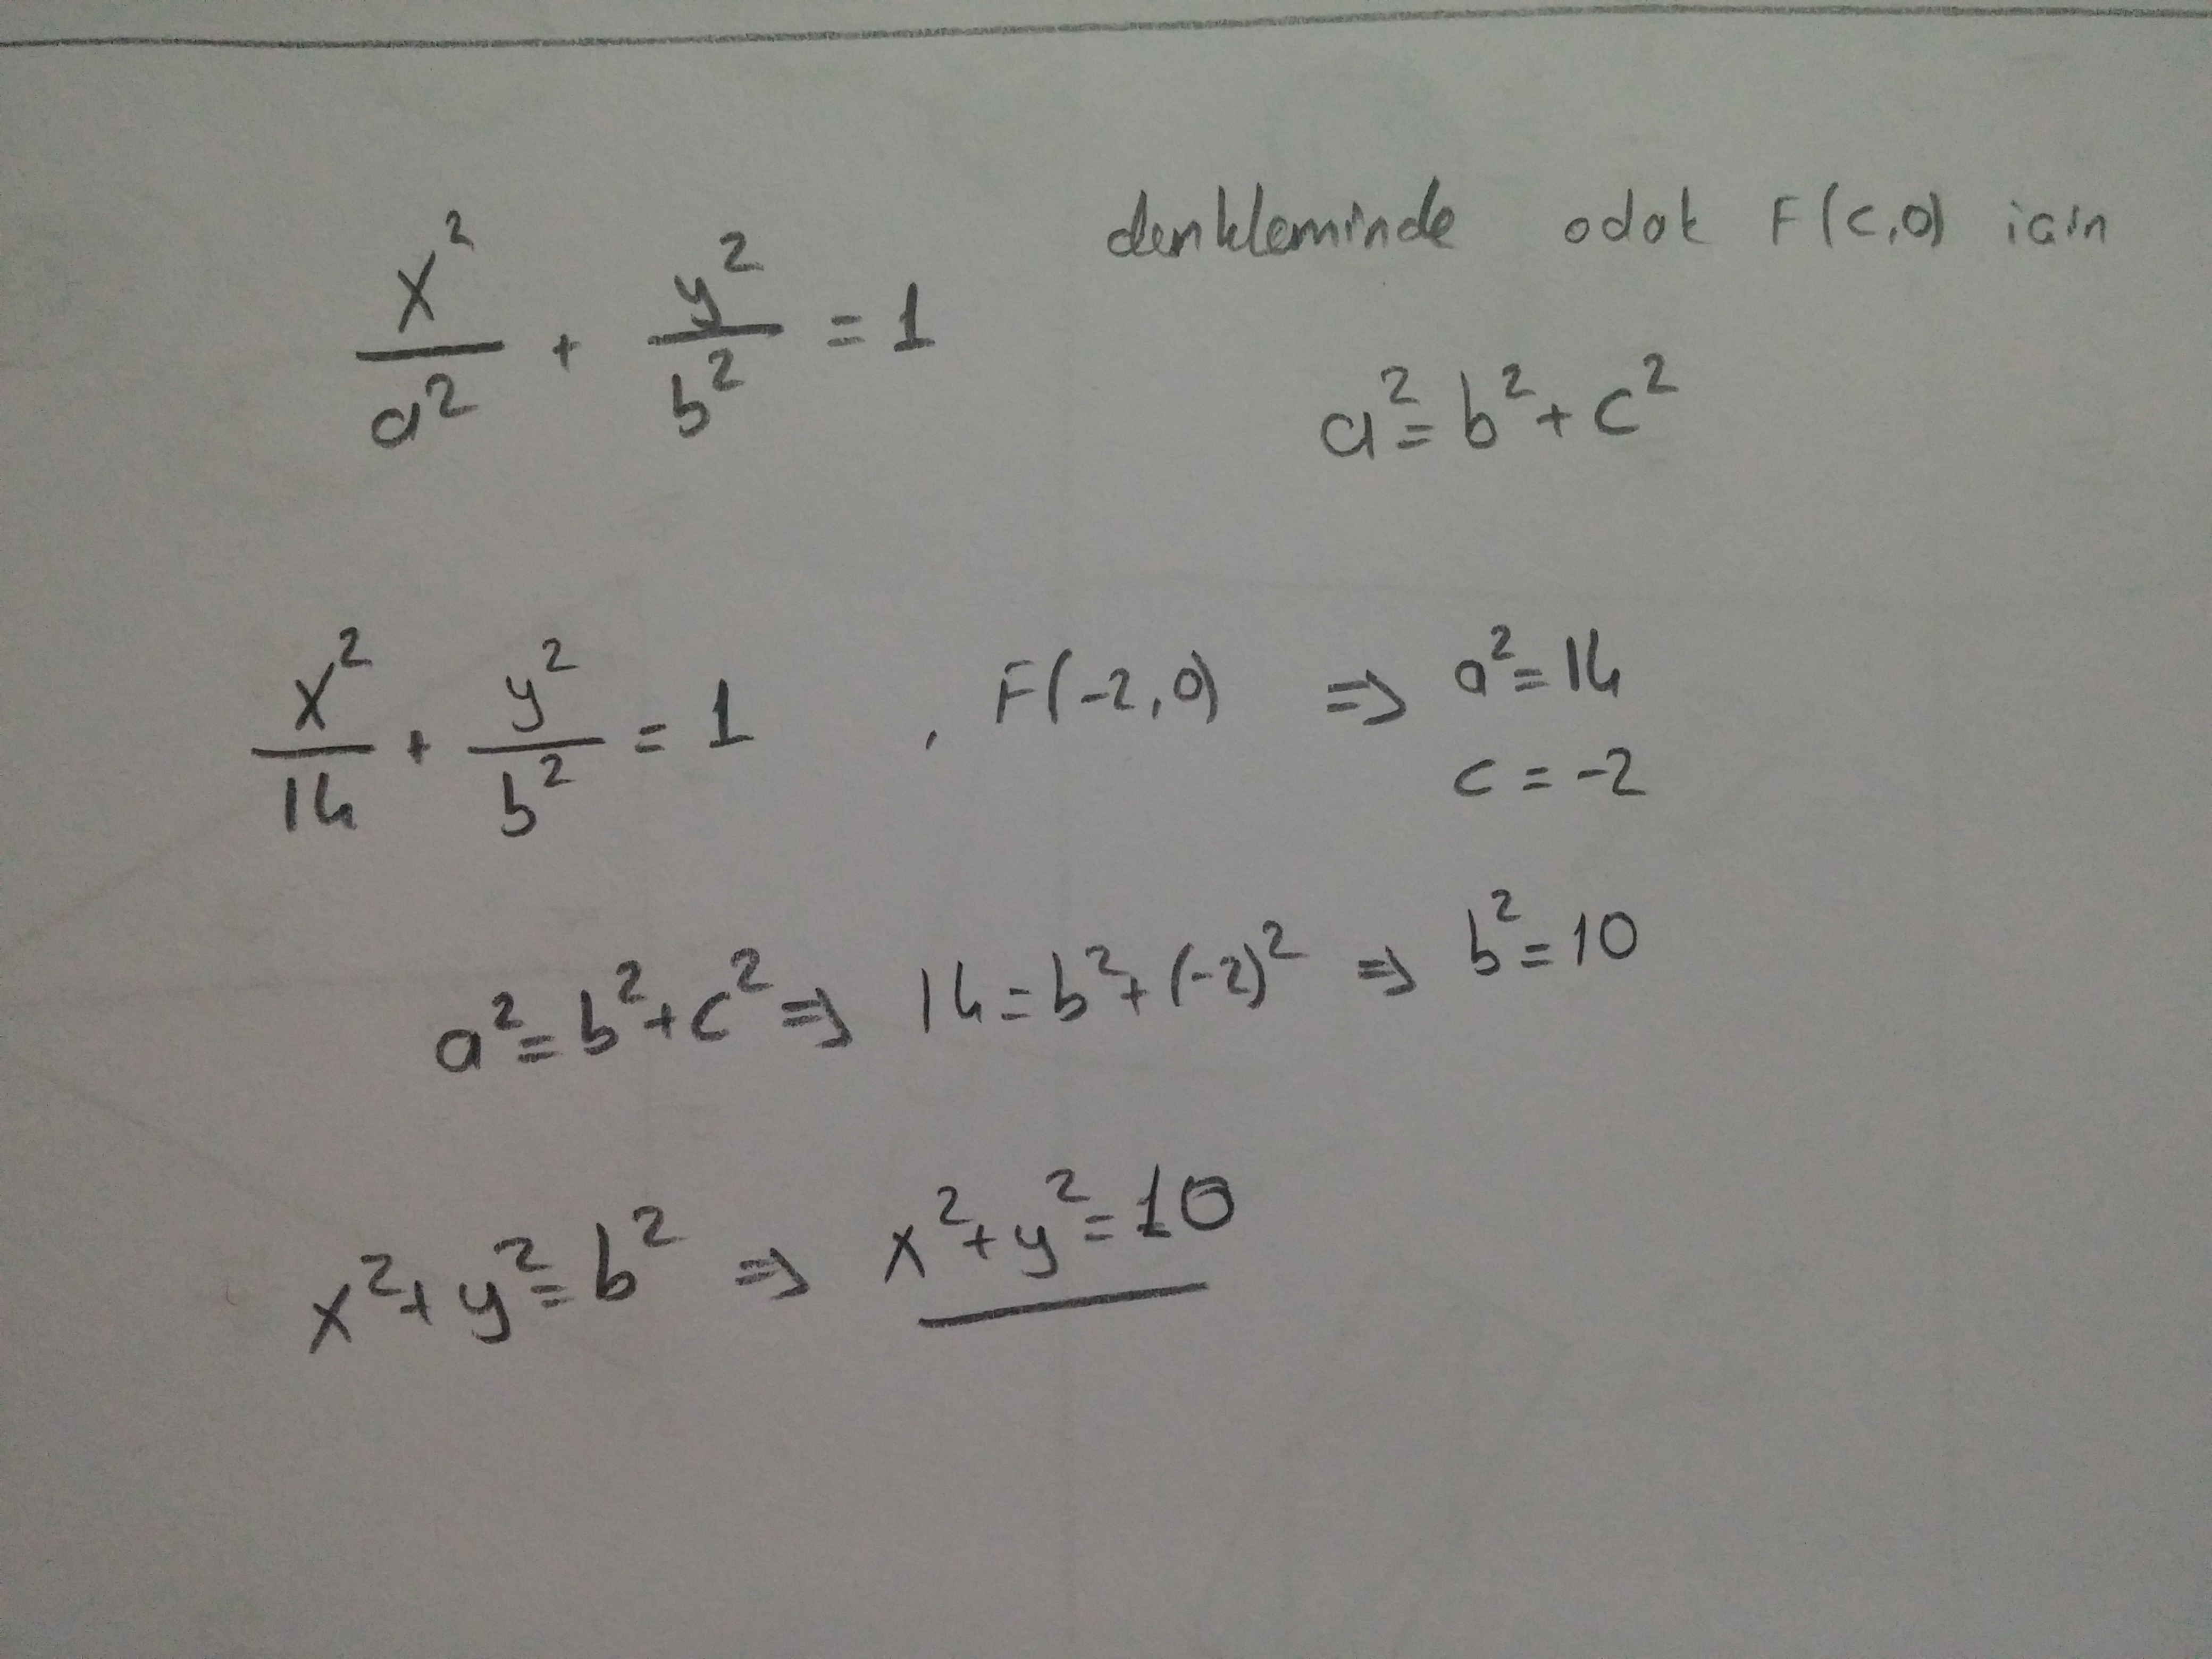 x²/a² + y²/b² = 1 denkleminde odak F(c,0) için
a² = b² + c²
x²/14 + y²/b² = 1 , F(-2,0) ⇒ a² = 14
c = -2
a² = b² + c² ⇒ 14 = b² + (-2)² ⇒ b² = 10
x² + y² = b² ⇒ x² + y² = 10